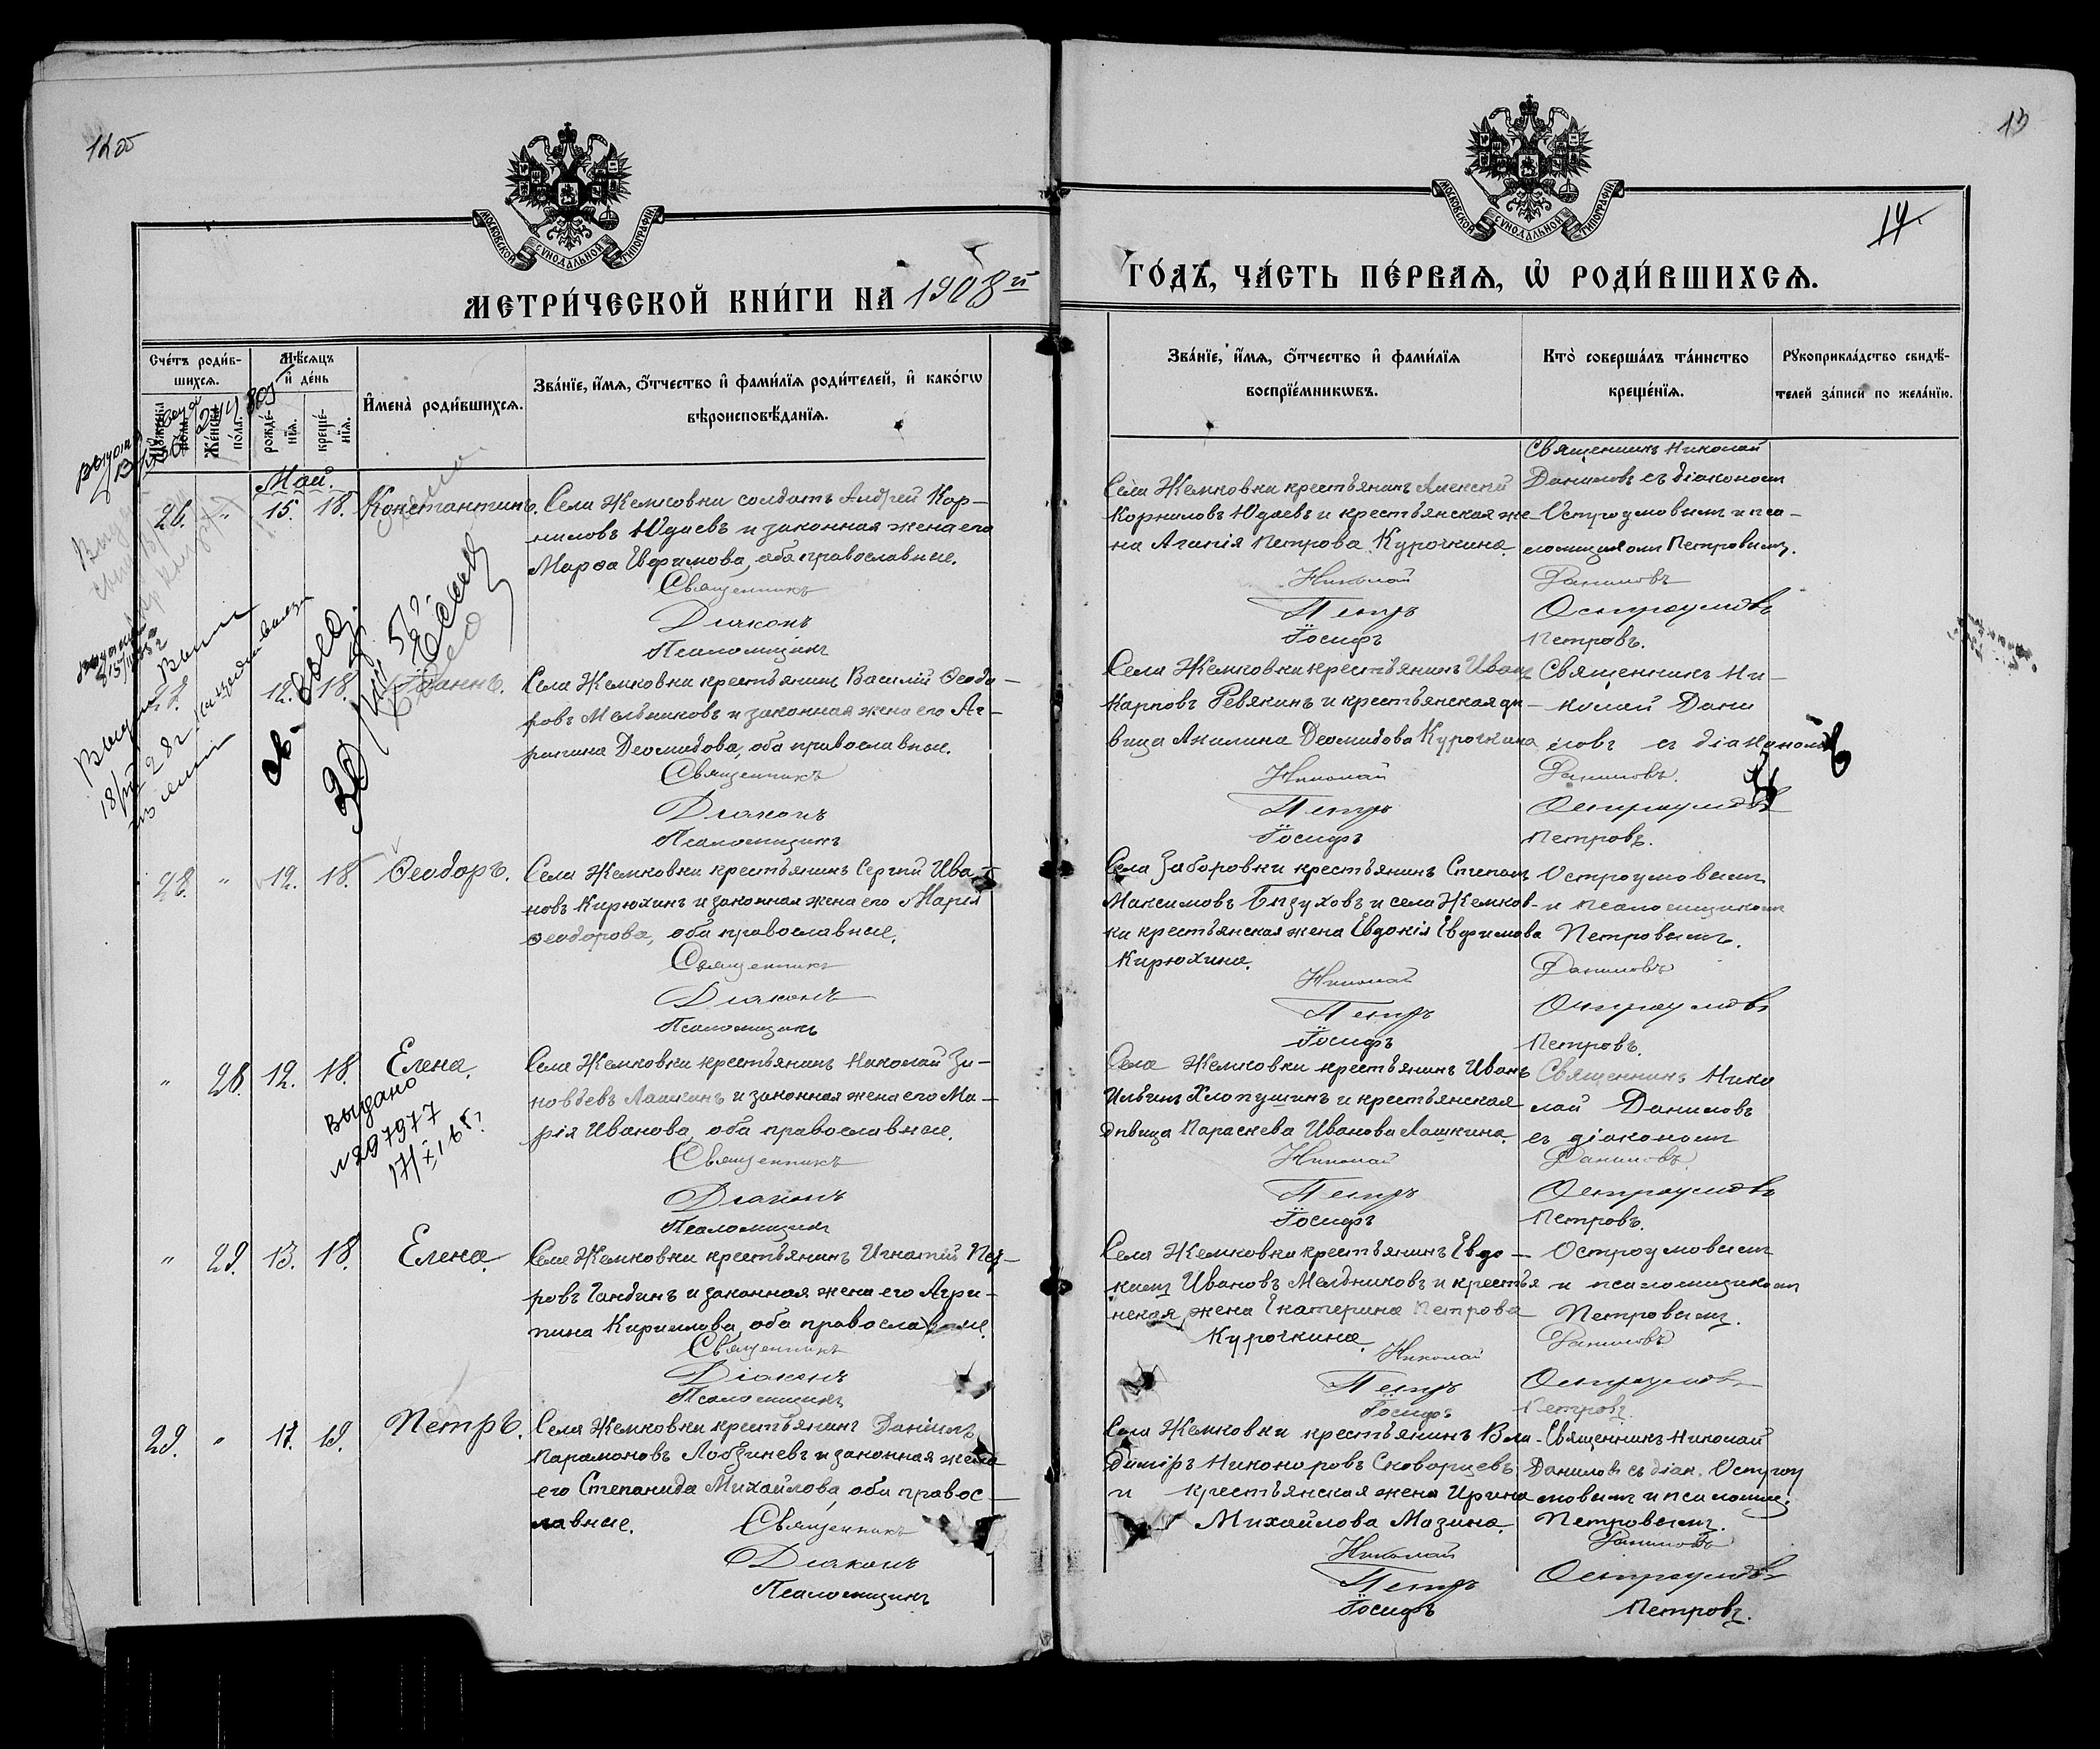 12об
13
14.
МОСКОВСКОЙ СѴНОДАЛЬНОЙ ТИПОГРАФІИ.
МОСКОВСКОЙ СѴНОДАЛЬНОЙ ТИПОГРАФІИ.
МЕТРИ́ЧЕСКОЙ КНИ́ГИ НА 1908й
ГО́ДЪ, ЧА́СТЬ ПЕ́РВАѦ, Ѡ҆ РОДИ́ВШИХСѦ.
Сче́тъ роди́в-
шихсѧ.
Мѣ́сѧцъ
и҆ де́нь
Мꙋжеска
пола.
Же́нска
по́ла.
рожде́-
нїѧ.
креще́-
нїѧ.
И҆мена̀ роди́вшихсѧ.
Зва́нїе, и҆́мѧ, ѻ҆́тчество и҆ фами́лїѧ роди́телей, и҆ како́гѡ
вѣроисповѣ́данїѧ.
Зва́нїе, и҆́мѧ, ѻ҆́тчество и҆ фами́лїѧ
воспрїе́мникѡвъ.
Кто̀ соверша́лъ та́инство
креще́нїѧ.
Рꙋкоприкла́дство свидѣ́-
телей за́писи по жела́нїю.
Май.
26. " 15. 18. Константинъ.
Села Жемковки солдатъ Андрей Кор-
ниловъ Юдаевъ и законная жена его
Марѳа Ефимова, оба православные.
Священникъ
Діаконъ
Псаломщикъ
Села Жемковки крестьянинъ Алексей
Корниловъ Юдаевъ и крестьянская же-
на Агапія Петрова Курочкина.
Николай
Петръ
Іосифъ
Священникъ Николай
Даниловъ съ діакономъ
Остроумовымъ и пса-
ломщикомъ Петровымъ.
Даниловъ
Остроумовъ
Петровъ.
27. 12. 18. Іоаннъ.
Села Жемковки крестьянинъ Василій Ѳеодо-
ровъ Мельниковъ и законная жена его Аг-
рипина Деомидова, оба православные.
Священникъ
Діаконъ
Псаломщикъ
Села Жемковки крестьянинъ Иванъ
Карповъ Ревякинъ и крестьянская дѣ-
вица Акилина Деомидова Курочкина
Николай
Петръ
Іосифъ
Священникъ Ни-
колай Дани
ловъ съ діакономъ
Даниловъ.
Остроумовъ
Петровъ.
28. " 12. 18. Ѳеодоръ.
Села Жемковки крестьянинъ Сергій Ива-
новъ Кирюхинъ и законная жена его Марія
Ѳеодорова, оба православные.
Священникъ
Діаконъ
Псаломщикъ
Села Заборовки крестьянинъ Степанъ
Максимовъ Бизуховъ и села Жемков-
ки крестьянская жена Евдокія Евфимова
Кирюхина.
Николай
Петръ
Іосифъ
Остроумовымъ
и псаломщикомъ
Петровымъ.
Даниловъ
Остроумовъ
Петровъ.
" 28. 12. 18. Елена.
Выдано
№297977
Села Жемковки крестьянинъ Николай Зи-
новьевъ Лашкинъ и законная жена его Ма-
рія Иванова, оба православные.
Священникъ
Діаконъ
Псаломщикъ
Села Жемковки крестьянинъ Иванъ
Ильинъ Хлопушинъ и крестьянская
дѣвица Параскева Иванова Лашкина.
Николай
Петръ
Іосифъ
Священникъ Нико
лай Даниловъ
съ діакономъ
Даниловъ.
Остроумовъ
Петровъ.
" 29. 13. 18. Елена.
Села Жемковки крестьянинъ Игнатій Пет-
ровъ Чандинъ и законная жена его Агри-
пина Кирилова, оба православные.
Священникъ
Діаконъ
Псаломщикъ
Села Жемковки крестьянинъ Евдо-
кимъ Ивановъ Мельниковъ и крестья
нская жена Екатерина Петрова
Курочкина.
Николай
Петръ
Іосифъ
Остроумовымъ
и псаломщикомъ
Петровымъ.
Даниловъ
Остроумовъ
Петровъ.
29. " 17. 19. Петръ.
Села Жемковки крестьянинъ Даніилъ
Парамоновъ Лобзиневъ и законная жена
его Степанида Михайлова, оба правос-
лавные.
Священникъ
Діаконъ
Псаломщикъ
Села Жемковки крестьянинъ Вла-
димиръ Никоноровъ Скворцевъ
и крестьянская жена Ирина
Михайлова Мазина.
Николай
Петръ
Іосифъ
Священникъ Николай
Даниловъ съ діак. Остроу
мовымъ и псаломщ.
Петровымъ.
Даниловъ
Остроумовъ
Петровъ.